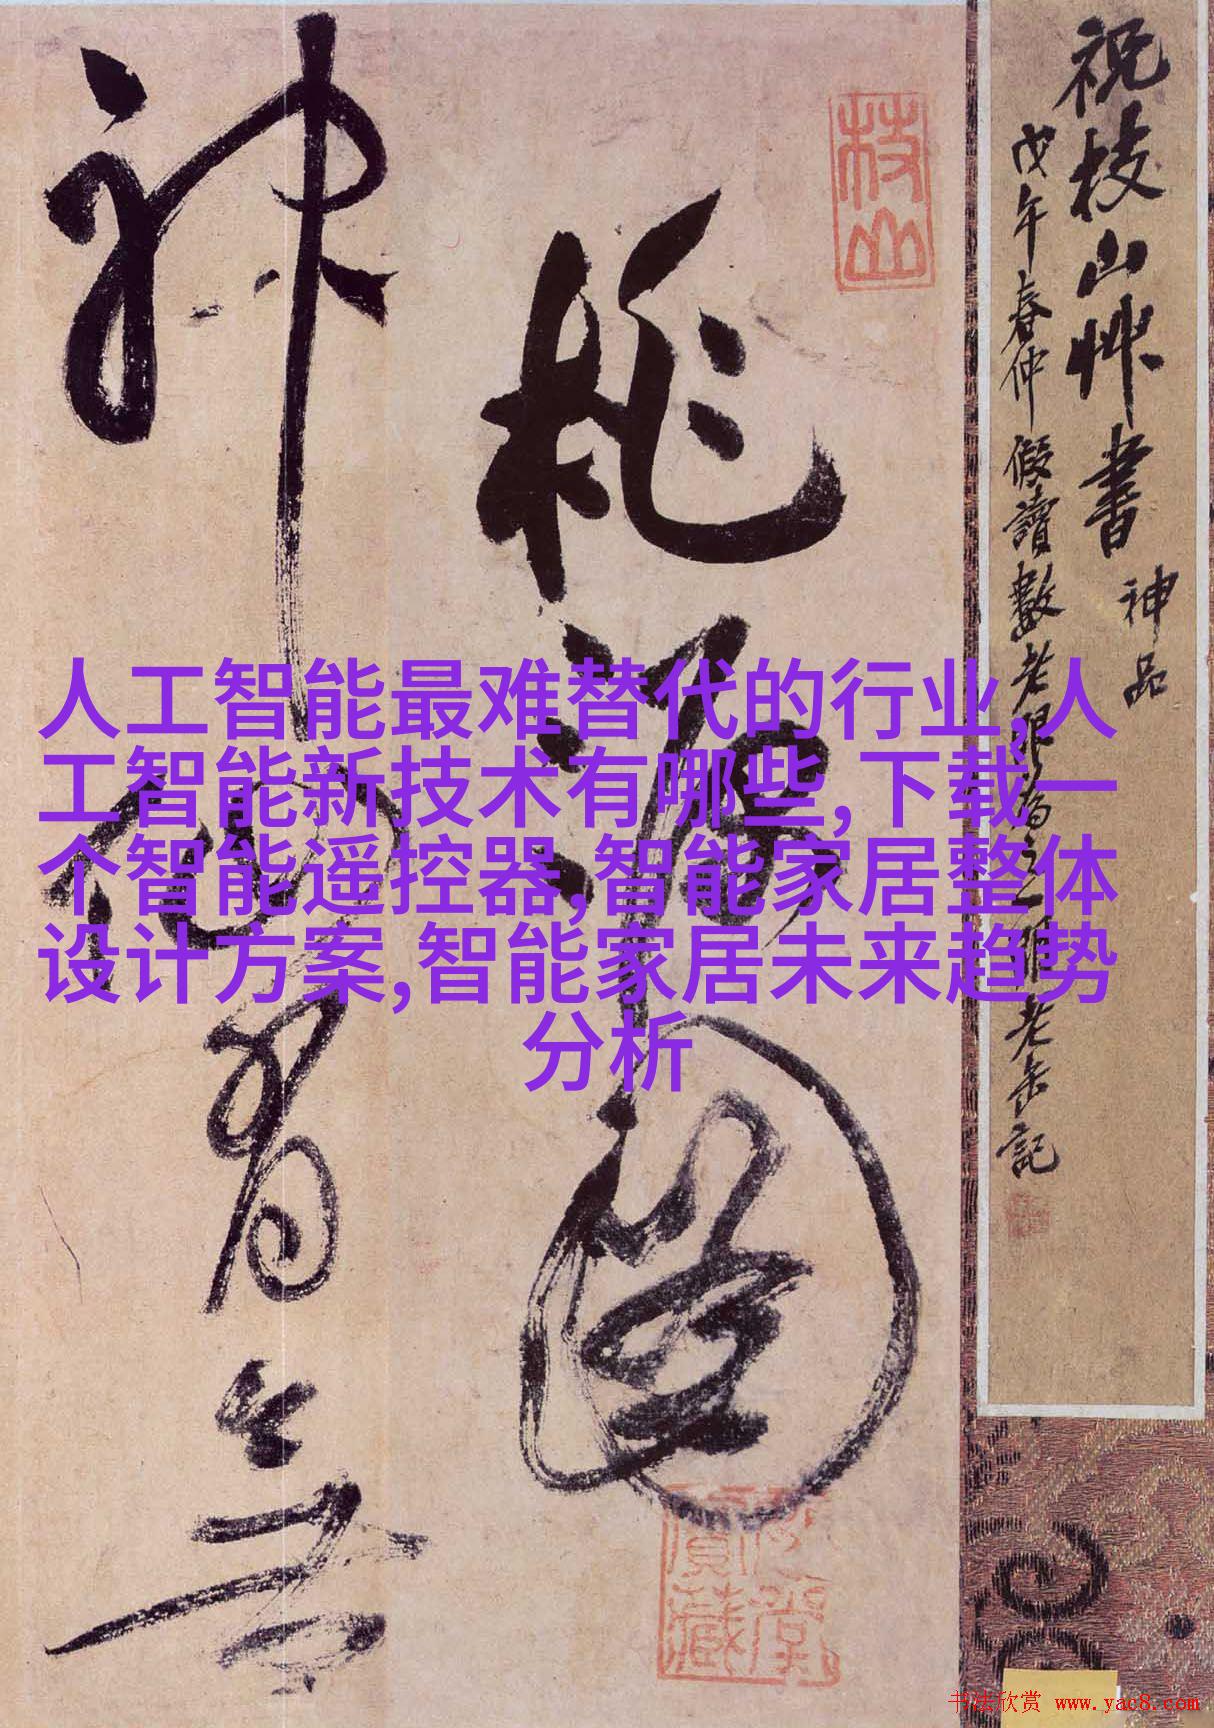 祝枝山草書 神品
戊午春仲假讀數老眼為之一明老缶記
枝山
桃源圖
神仙有無
人工智能最难替代的行业,人
工智能新技术有哪些,下载一
个智能遥控器,智能家居整体
设计方案,智能家居未来趋势
分析
书法欣赏 www.yac8.com